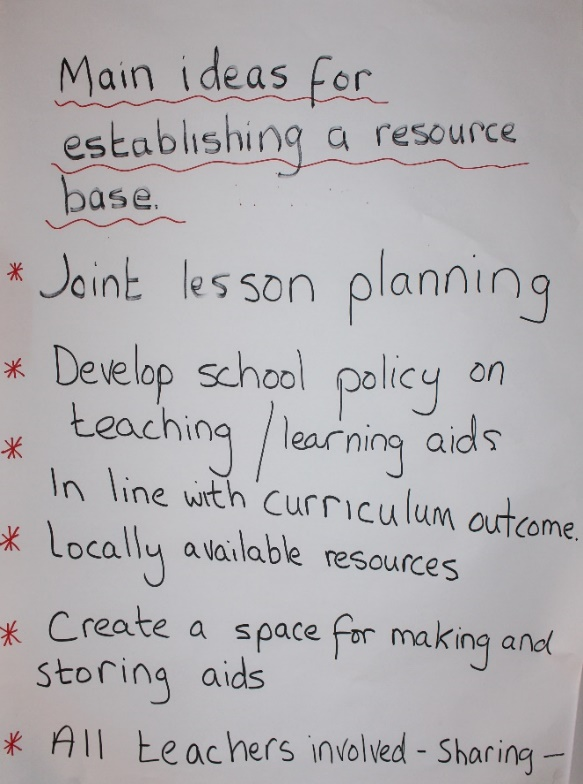 Main ideas for
establishing a resource
base.
* Joint lesson planning
* Develop school policy on
teaching / learning aids
* In line with curriculum outcome.
* Locally available resources
* Create a space for making and
storing aids
* All teachers involved - Sharing -